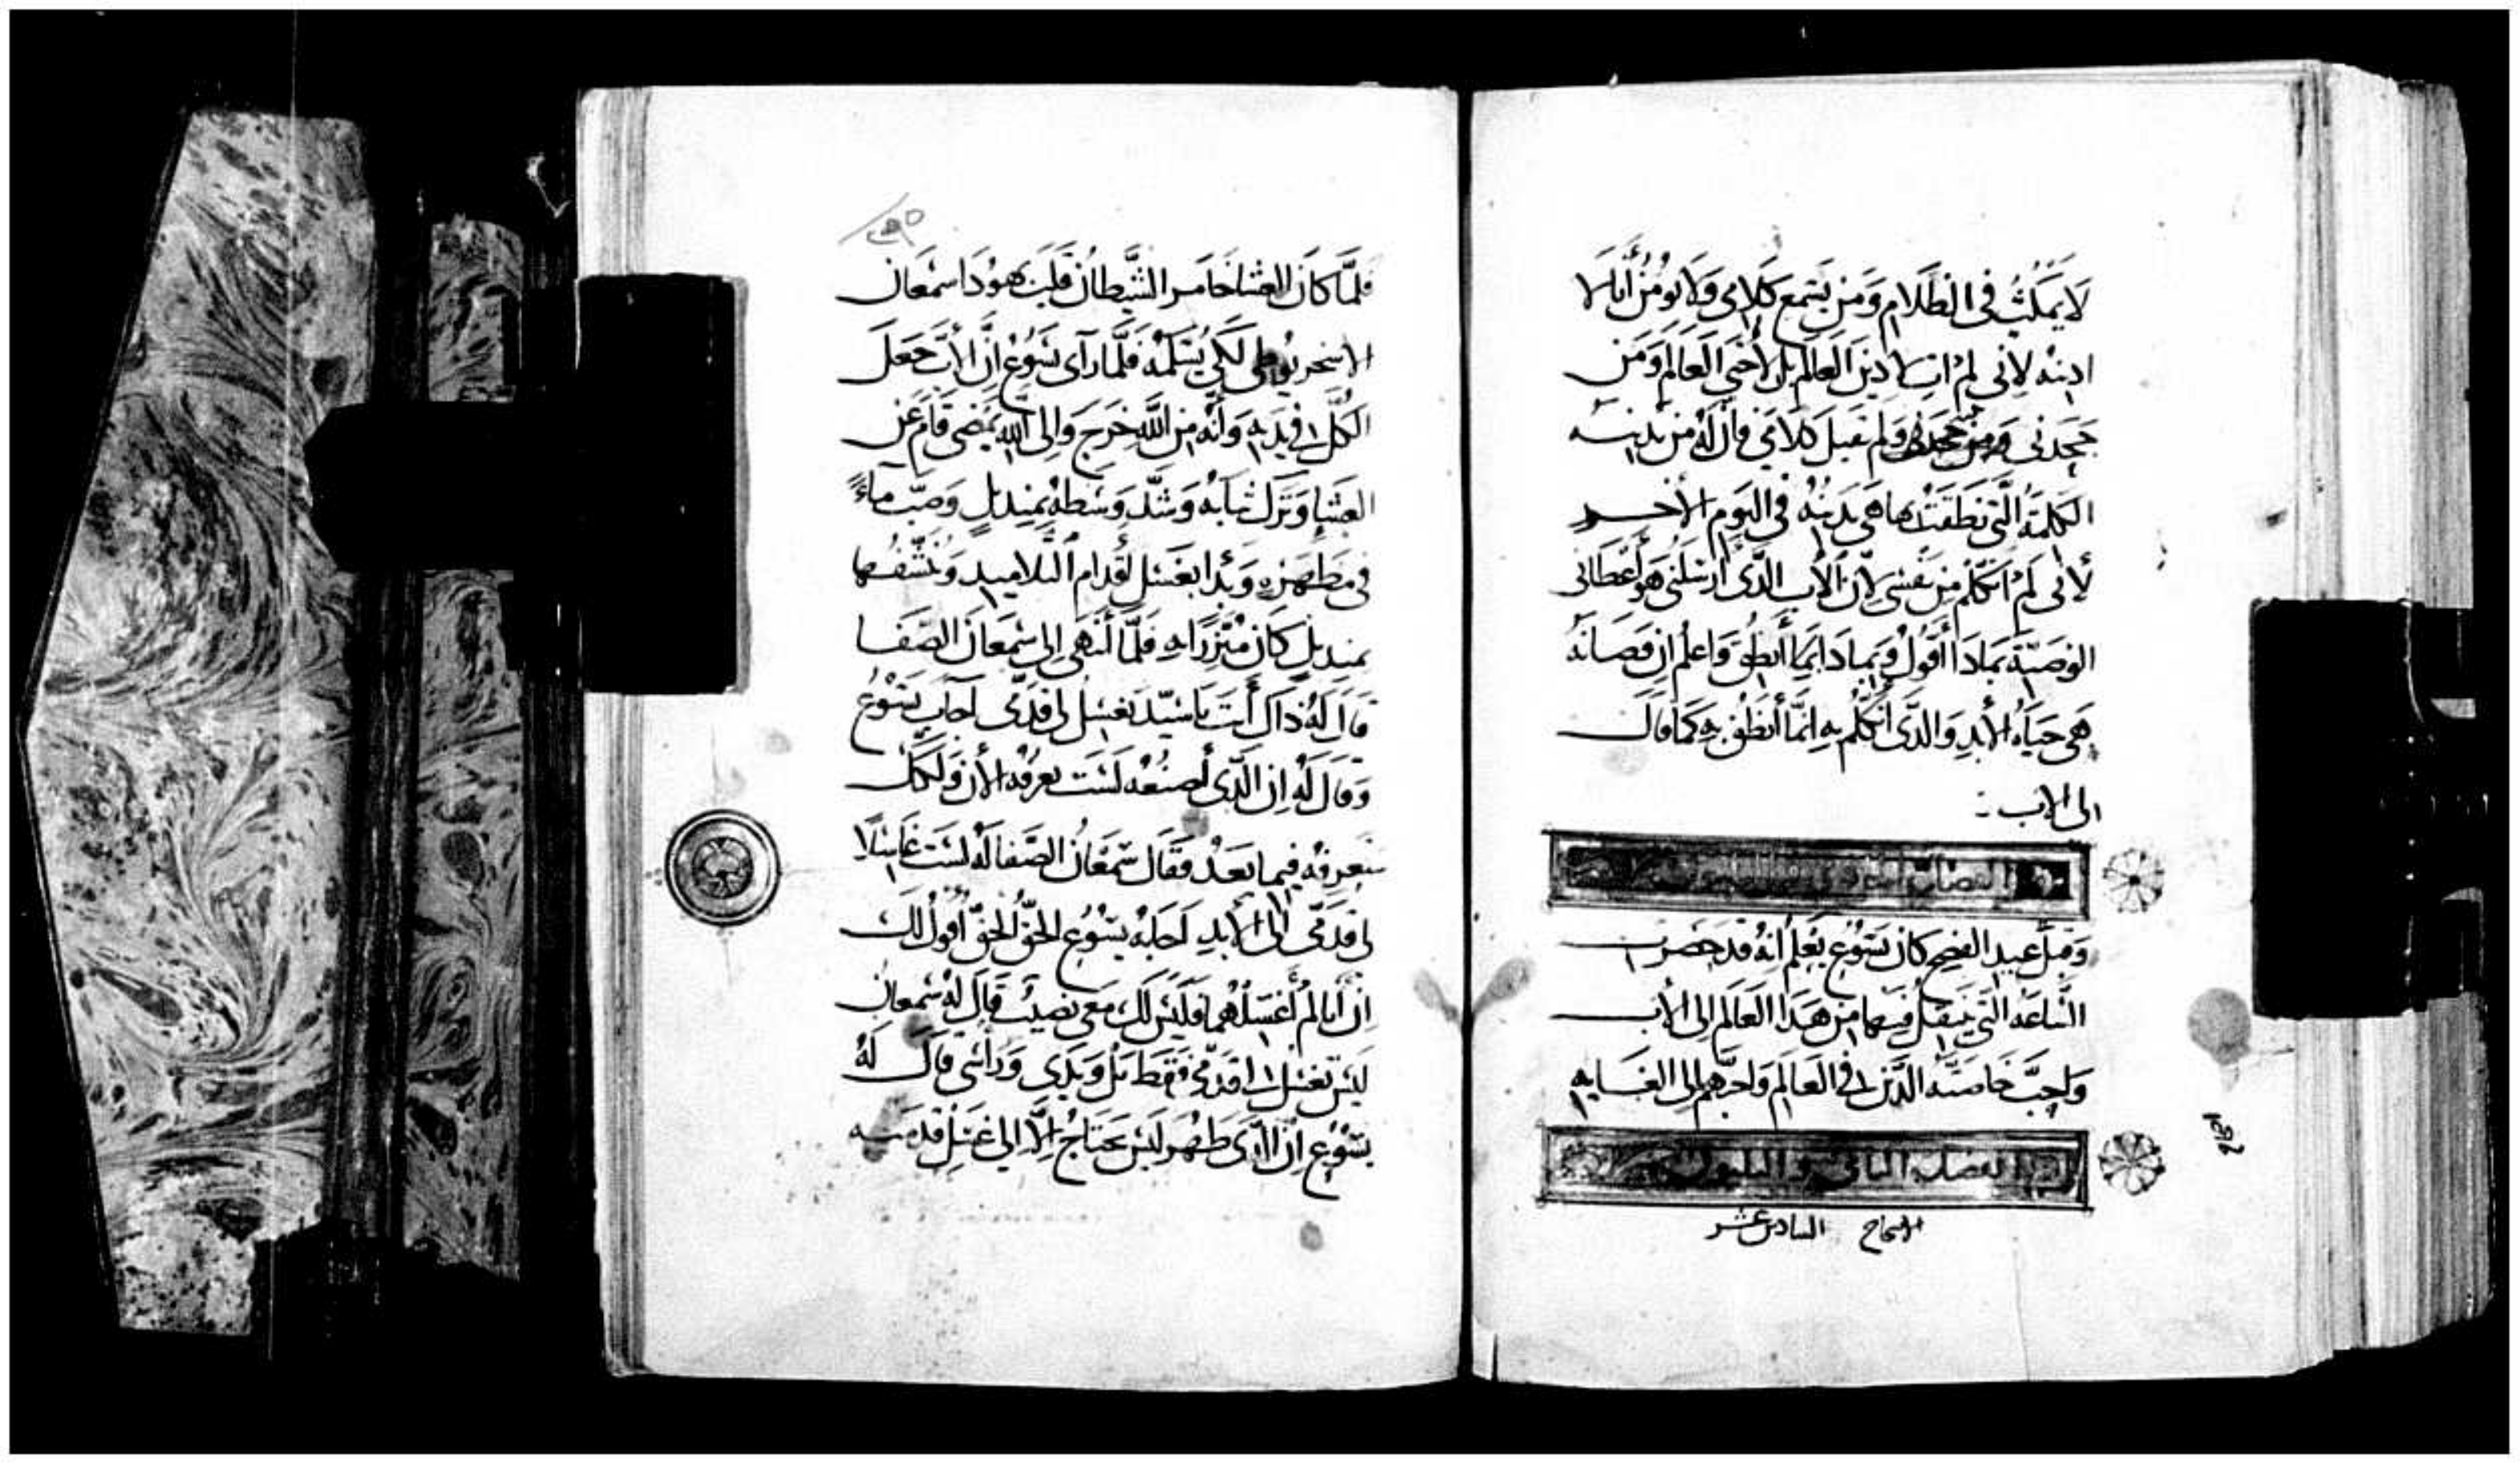 لا يمكث في الظلام ومن يسمع كلامي ولا يومن أنا لا
ادينه لاني لم ات لا دين العالم بل لأحيي العالم ومن
جحدني ومن جحدني ولم يقبل كلامي فان له من يدينه
الكلمة التي نطقت بها هي تدينه في اليوم الأخير
لأني لم اتكلم من نفسي لأن الأب الذي أرسلني هو أعطاني
الوصية بماذا أقول وبماذا انطق واعلم ان وصاته
هي حياة الأبد والذي أتكلم به انما أنطق به كما قال
لي الاب
الفصل
وقبل عيد الفصح كان يسوع يعلم انه قد حضرت
الساعة التي ينتقل فيها من هذا العالم إلى الأب
واحب خاصته الذين في العالم واحبهم إلى الغايه
الفصل الثاني والثلثون
الاصحاح السادس عشر
فلما كان العشا خامر الشيطان قلب يهودا سمعان
الاسخريوطي لكي يسلمه فلما رأى يسوع ان الأب جعل
الكل في يديه وأنه من الله خرج وإلى الله يمضي قام عن
العشا وترك ثيابه وشد وسطه بمنديل وصب ماء
في مطهرة وبدا بغسل أقدام التلاميد وينشفها
بمنديل كان متزرا به فلما أنتهى إلى سمعان الصفا
قال له ذاك أنت يا سيد تغسل لي قدمي أجاب يسوع
وقال له ان الذي أصنعه لست تعرفه الأن ولكنك
ستعرفه فيما بعد فقال سمعان الصفا له لست غاسلا
لي قدمي إلى الأبد أجابه يسوع الحق الحق أقول لك
ان أنا لم أغسلهما فليس لك معي نصيب قال له سمعان
ليس تغسل لي قدمي فقط بل ويدي ورأسي قال له
يسوع ان الذي طهر ليس يحتاج إلا إلى غسل قدميه